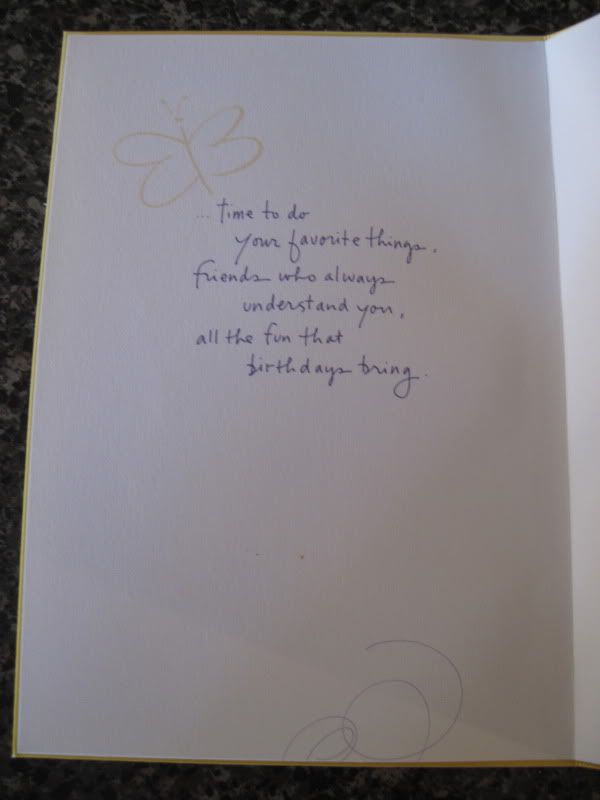 ... time to do
your favorite things,
friends who always
understand you,
all the fun that
birthdays bring.